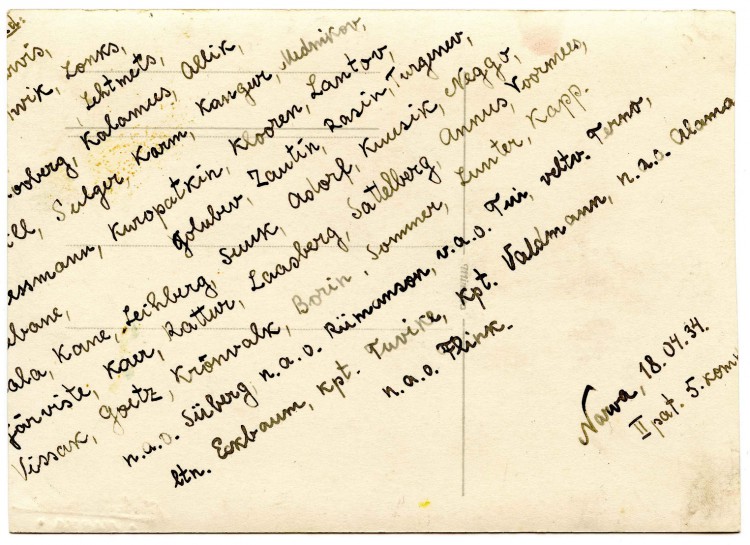 Lonks,
Lehtmets,
Kalamees, Allik,
Sulger, Karm, Kangur, Mednikov,
essmann, Kuropatkin, Klooren, Lantov,
ubane, Golubev, Zautin, Rasin, Turgenev,
ala, Kane, Leihberg, Suuk, Adorf, Kuusik, Neggo,
järviste, Kaer, Rattur, Laasberg, Sattelberg, Annus, Voormees,
Vissak, Goitz, Krönvalk, Borin, Sommer, Lunter, Kapp.
n.a.o. Süberg, n.a.o. Riimanson, v.a.o. Tiu, veltv. Terno,
ltn. Eckbaum, kpt. Tuvike, kpt. Valdmann, n.a.o. Alama
n.a.o. Flink.
Narva, 18.04.34.
II pat. 5. komp